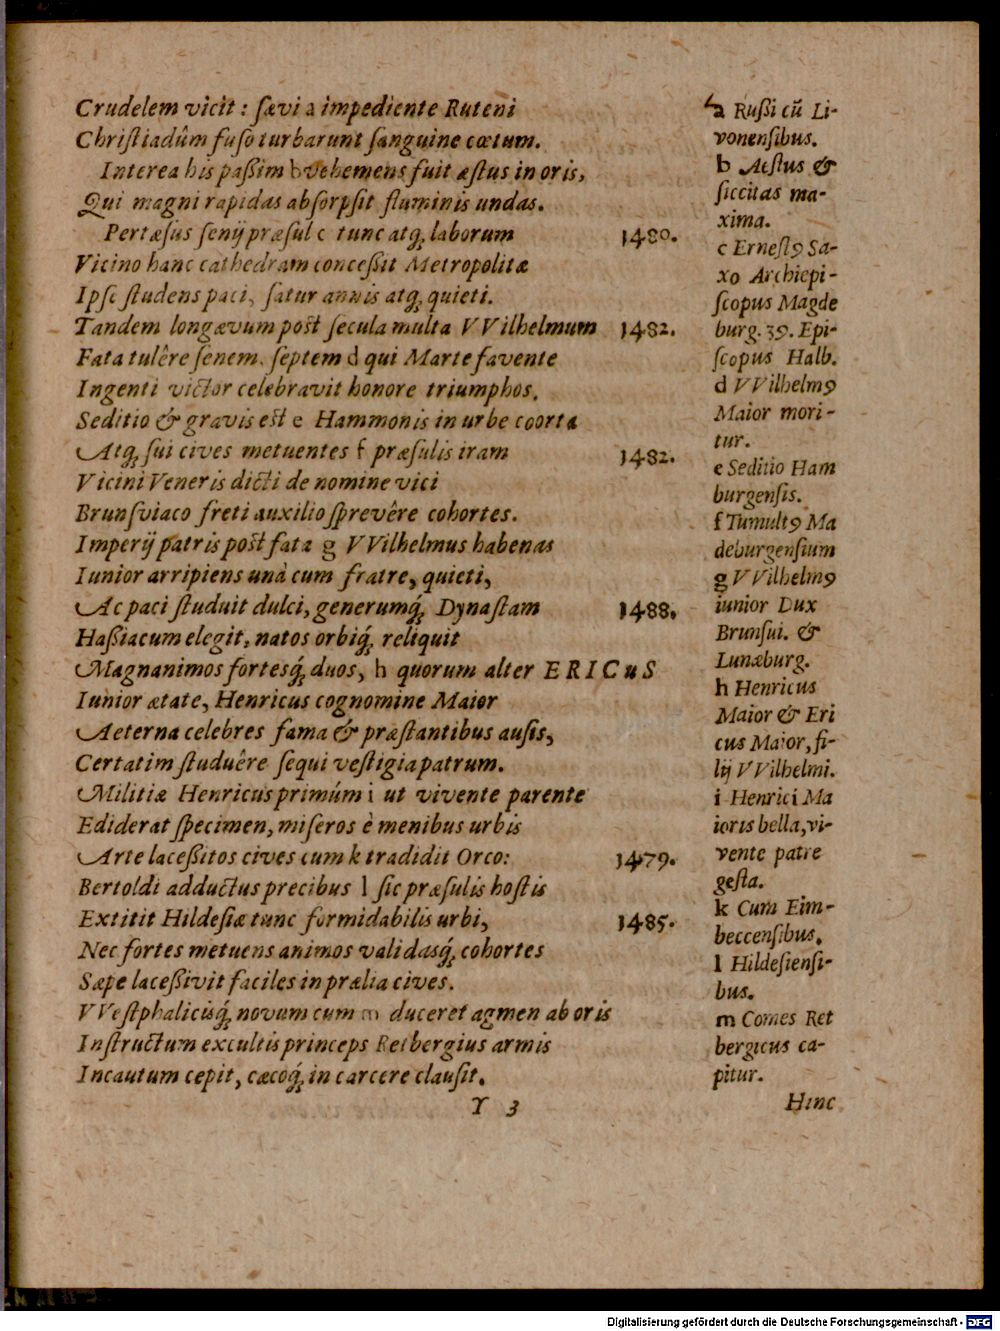 Crudelem vicit : ſævi a impediente Ruteni
Chriſtiadûm fuſo turbarunt ſanguine cœtum.
Interea his paßim b vehemens fuit æſtus in oris,
Qui magni rapidas abſorpſit fluminis undas.
Pertæſus ſenij præſul c tunc atq; laborum 1480.
Vicino hanc cathedram conceßit Metropolitæ
Ipſe ſtudens paci, ſatur annis atq; quieti.
Tandem longævum poſt ſecula multa VVilhelmum 1482.
Fata tulêre ſenem, ſeptem d qui Marte favente
Ingenti victor celebravit honore triumphos.
Seditio & gravis eſt e Hammonis in urbe coorta
Atq; ſui cives metuentes f præſulis iram 1482.
Vicini Veneris dicti de nomine vici
Brunſviaco freti auxilio ſprevêre cohortes.
Imperij patris poſt fata g VVilhelmus habenas
Iunior arripiens unà cum fratre, quieti,
Ac paci ſtuduit dulci, generumq́; Dynaſtam 1488.
Haßiacum elegit, natos orbiq́; reliquit
Magnanimos fortesq́; duos, h quorum alter ERICuS
Iunior ætate, Henricus cognomine Maior
Aeterna celebres fama & præſtantibus auſis,
Certatim ſtuduêre ſequi veſtigia patrum.
Militiæ Henricus primúm i ut vivente parente
Ediderat ſpecimen, miſeros è menibus urbis
Arte laceßitos cives cum k tradidit Orco: 1479.
Bertoldi adductus precibus l ſic præſulis hoſtis
Extitit Hildeſiæ tunc formidabilis urbi, 1485.
Nec fortes metuens animos validasq́; cohortes
Sæpe laceßivit faciles in prælia cives.
VVeſtphalicisq́; novum cum m duceret agmen ab oris
Inſtructum excultis princeps Retbergius armis
Incautum cepit, cæcoq́; in carcere clauſit.
Y 3
a Rußi cū Li-
vonenſibus.
b Aeſtus &
ſiccitas ma-
xima.
c Erneſtꝰ Sa-
xo Archiepi-
ſcopus Magde
burg. 39. Epi-
ſcopus Halb.
d VVilhelmꝰ
Maior mori-
tur.
e Seditio Ham
burgenſis.
f Tumultꝰ Ma
deburgenſium
g VVilhelmꝰ
iunior Dux
Brunſui. &
Lunæburg.
h Henricus
Maior & Eri
cus Maior, fi-
lij VVilhelmi.
i Henrici Ma
ioris bella, vi-
vente patre
geſta.
k Cum Eim-
beccenſibus.
l Hildeſienſi-
bus.
m Comes Ret
bergicus ca-
pitur.
Hinc
Digitalisierung gefördert durch die Deutsche Forschungsgemeinschaft - DFG